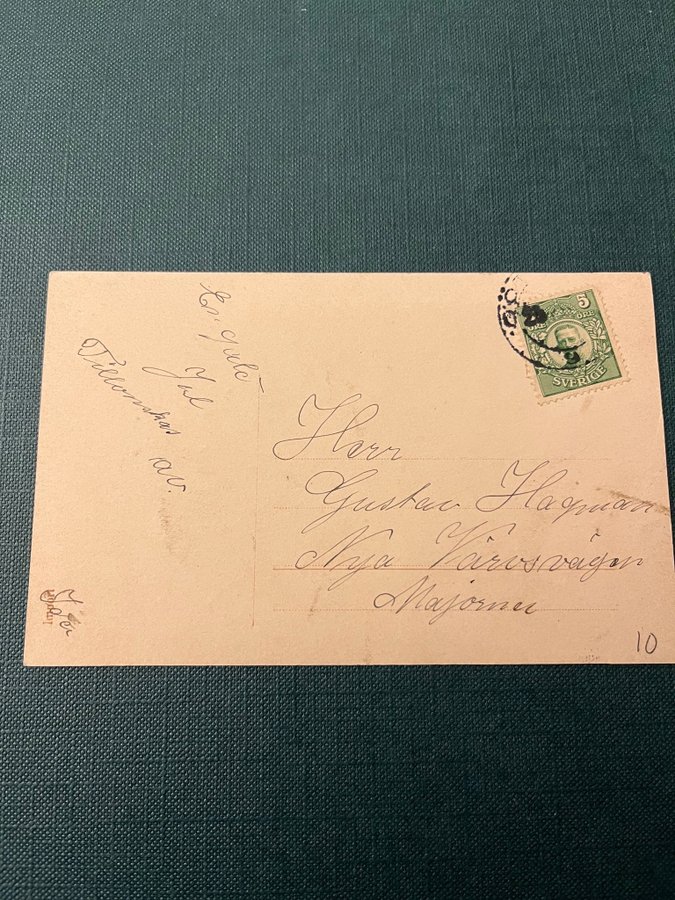 En god
Jul
Tillönskas
av.
5
ÖRE
SVERIGE
Herr
Gustav Hagman
Nya Varvsvägen
Majorna
10